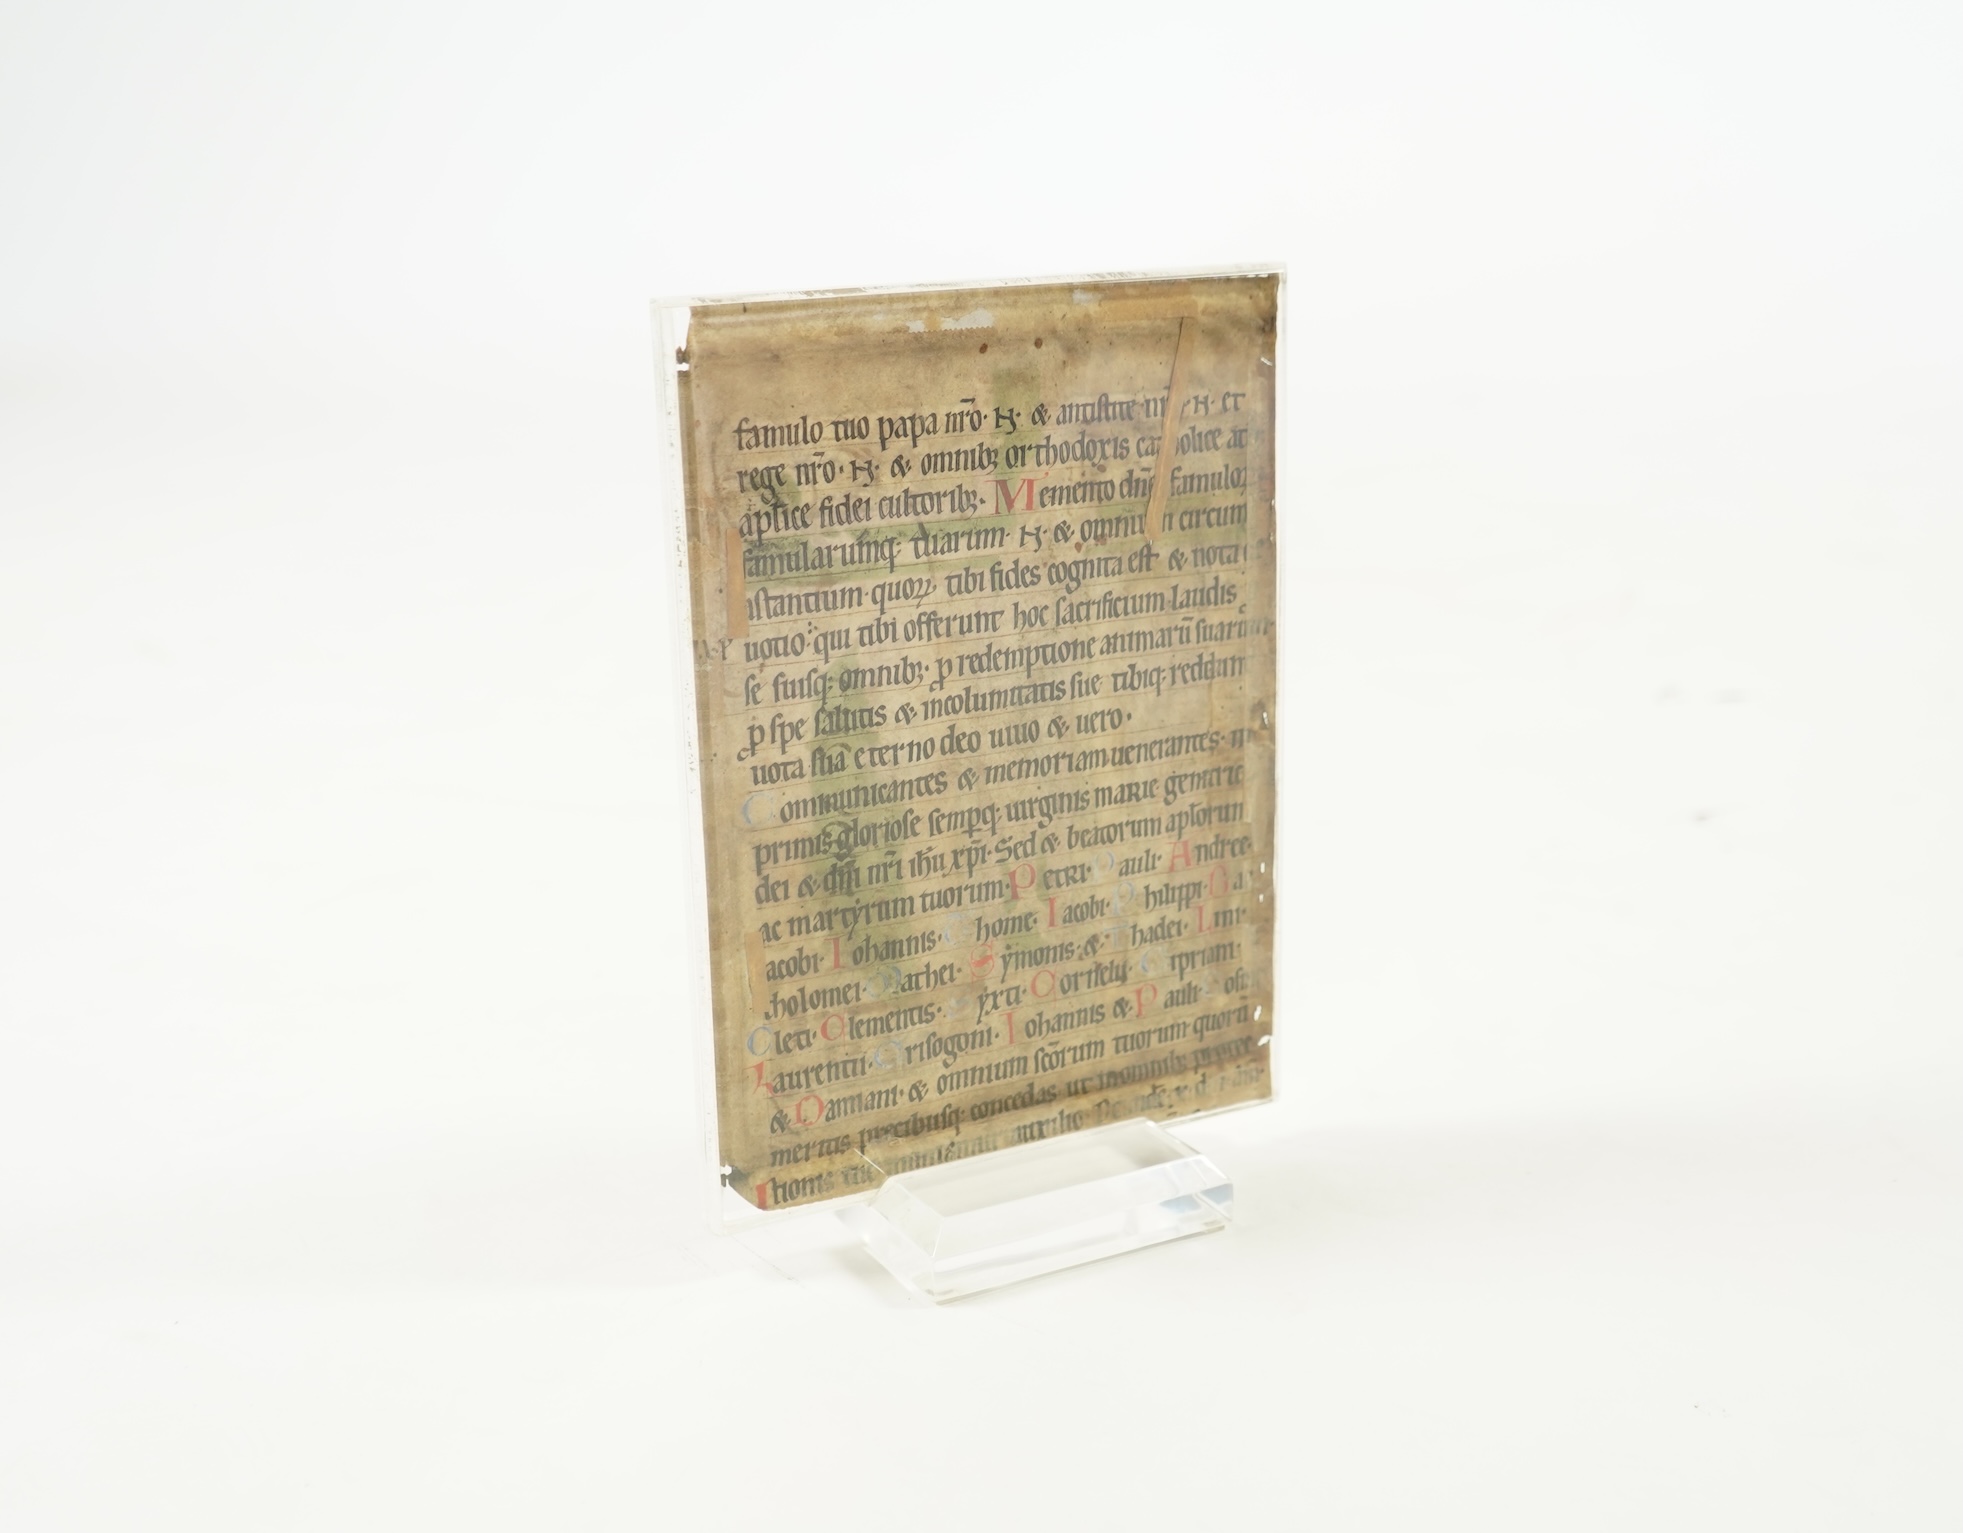 famulo tuo papa nr̄o· N· & antistite nr̄ N· et
rege nr̄o· N· & omnibꝫ orthodoxis catholice at
aplice fidei cultoribꝫ· Memento dn̄e famuloꝝ
famularumqꝫ tuarum· N· & omniu circum
astantium· quoꝝ tibi fides cognita est & nota
uotio· qui tibi offerunt hoc sacrificium laudis
se suisqꝫ omnibꝫ· ꝓ redemptione animarū suarum
ꝓ spe salutis & incolumitatis sue tibiqꝫ reddunt
uota sua eterno deo uiuo & uero·
Communicantes & memoriam uenerantes· in
primis gloriose sempqꝫ uirginis marie genitric
dei & dn̄i nr̄i ih̄u xp̄i· Sed & beatorum aplorum
ac martyrum tuorum· Petri· Pauli· Andree·
acobi· Iohannis· Thome· Iacobi· Philippi· Ba
tholomei· Mathei· Symonis· & Thadei· Lini·
Cleti· Clementis· Syxti· Cornelij· Cipriani·
Laurentii· Crisogoni· Iohannis & Pauli· Cos
& Damiani· & omnium scōrum tuorum· quorū
meritis precibusqꝫ concedas· ut inomnibꝫ protec
tionis tue auxilio·